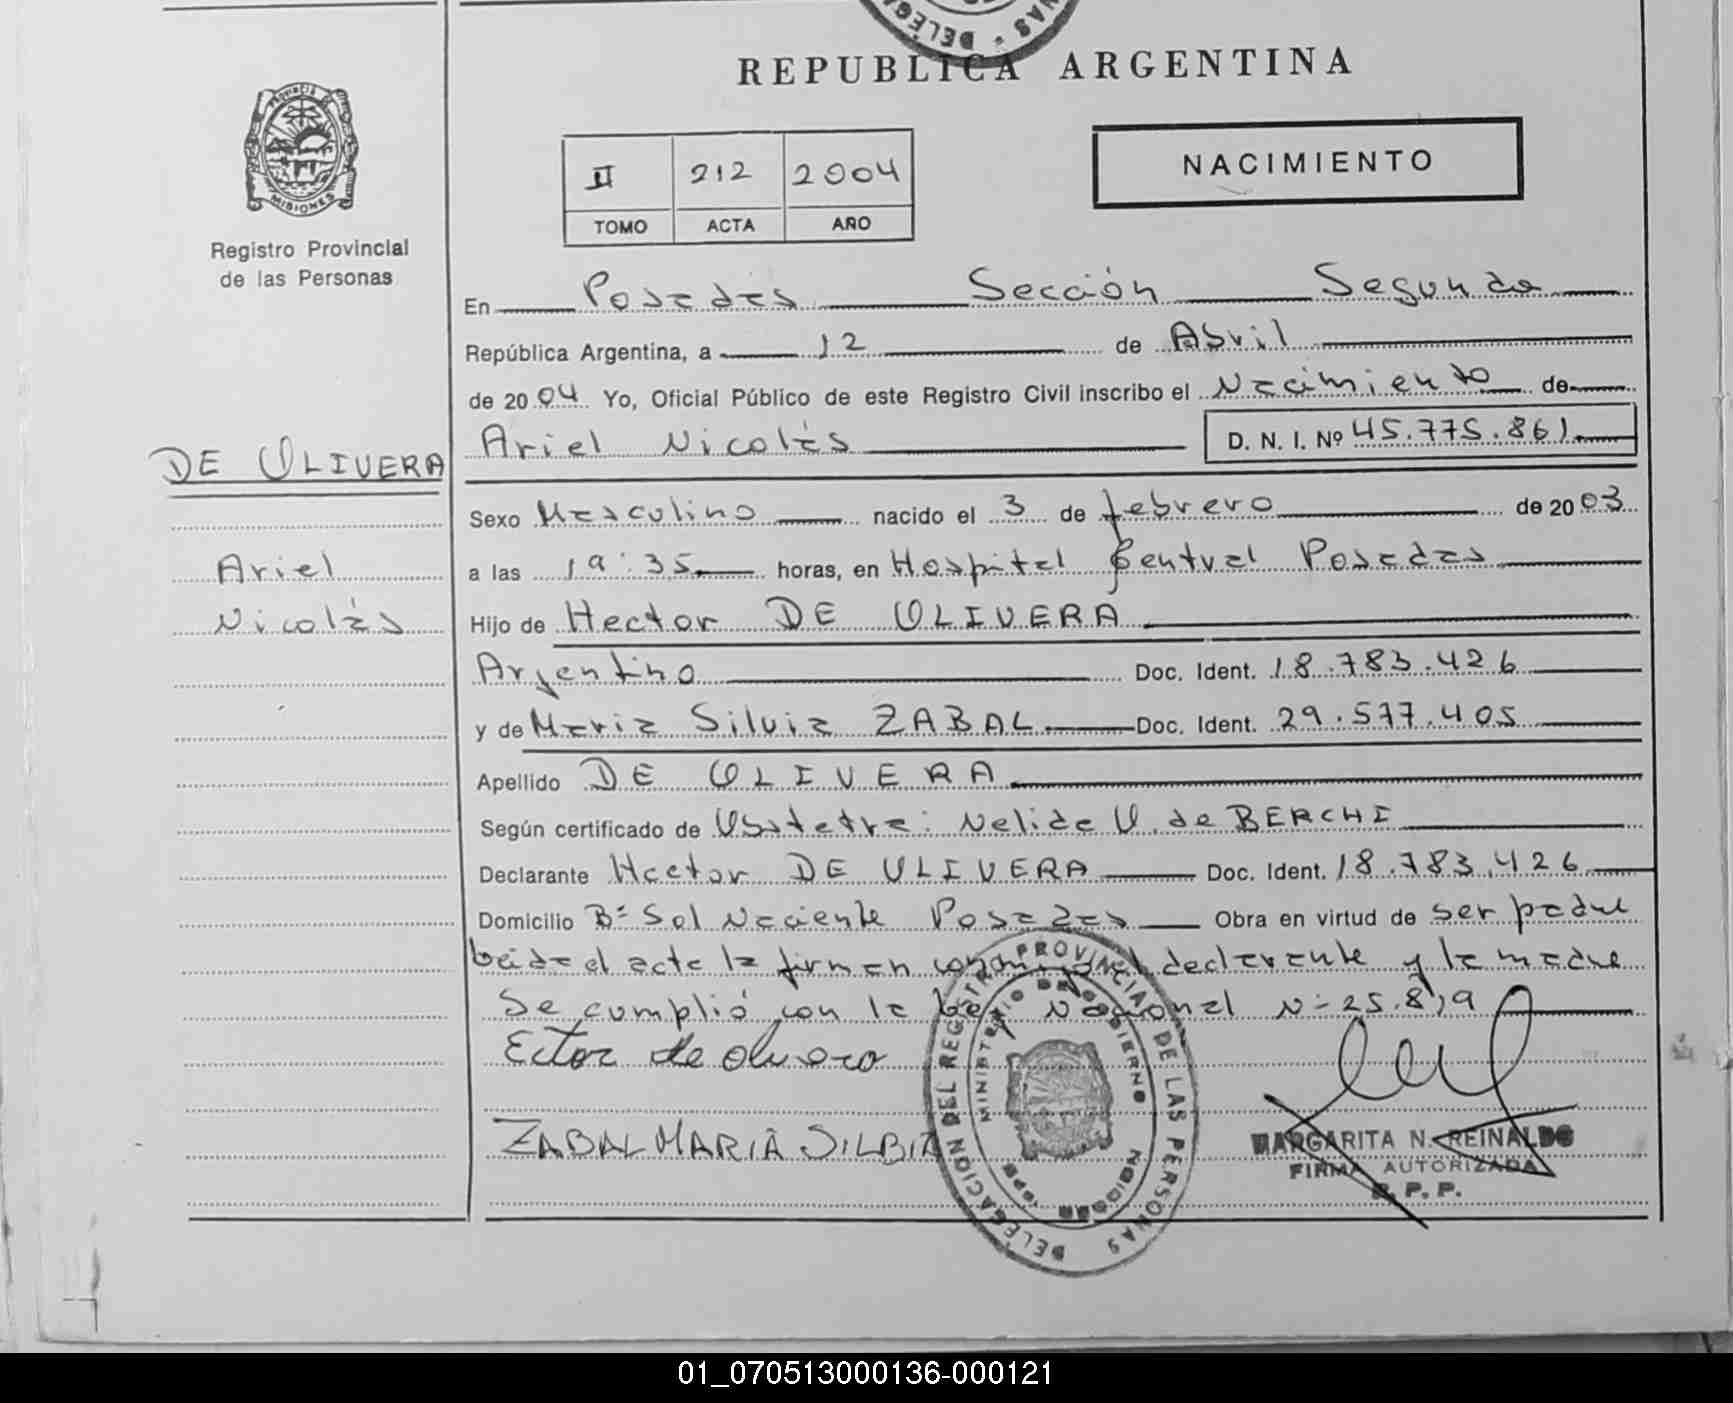 REPUBLICA ARGENTINA
PROVINCIA DE
MISIONES
Registro Provincial
de las Personas
II 212 2004
TOMO ACTA AÑO
NACIMIENTO
En Posadas Sección Segunda
República Argentina, a 12 de Abril
de 2004 Yo, Oficial Público de este Registro Civil inscribo el Nacimiento de
Ariel Nicolás D. N. I. Nº 45.775.861
DE OLIVERA
Ariel
Nicolás
Sexo Masculino nacido el 3 de febrero de 2003
a las 19:35 horas, en Hospital Central Posadas
Hijo de Hector DE OLIVERA
Argentino Doc. Ident. 18.783.426
y de Maria Silvia ZABAL Doc. Ident. 29.577.405
Apellido DE OLIVERA
Según certificado de Obstetra: Nelida V. de BERCHI
Declarante Hector DE OLIVERA Doc. Ident. 18.783.426
Domicilio Bº Sol Naciente Posadas Obra en virtud de ser padre
leida el acta la firman conmigo el declarante y la madre
Se cumplió con la ley Nacional Nº 25.819
Ector de olivera
ZABAL MARIA SILBIA
DELEGACION DEL REGISTRO PROVINCIAL DE LAS PERSONAS
MINISTERIO DE GOBIERNO
MARGARITA N. REINALDO
FIRMA AUTORIZADA
R. P. P.
01_070513000136-000121